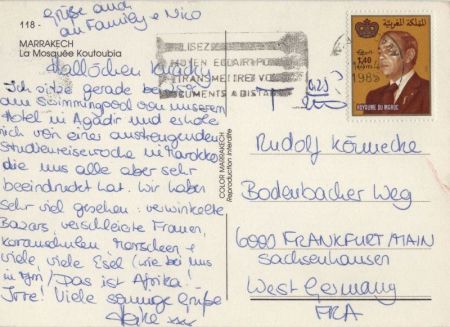 Grüße auch
an Family + Nico
118 -
MARRAKECH
La Mosquée Koutoubia
Hallöchen
Ich sitze gerade bei
am Swimmingpool von unserem
Hotel in Agadir und erhole
mich von einer anstrengenden
Studienreisewoche in Marokko
die uns alle aber sehr
beeindruckt hat. Wir haben
sehr viel gesehen: verwinkelte
Bazars, verschleierte Frauen,
Koranschulen, Moscheen +
viele, viele Esel (wie bei uns
in) Das ist Afrika!
Irre! Viele sonnige Grüße
Heike xxx
COLOR MARRAKECH
Reproduction interdite
UTILISEZ
MOYEN ECLAIR POUR
TRANSMETTRE VOS
DOCUMENTS A DISTANCE
المملكة المغربية
1,40
1985
ROYAUME DU MAROC
Rudolf Könnecke
Bodenbacher Weg
6000 FRANKFURT/MAIN
Sachsenhausen
West Germany
FRA